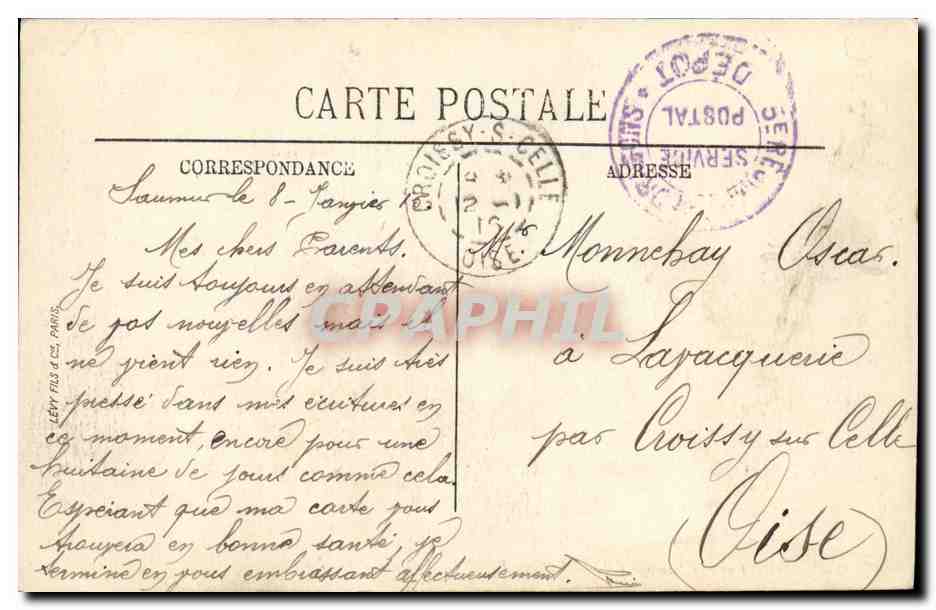 CARTE POSTALE
CORRESPONDANCE
ADRESSE
DÉPOT
SERVICE
POSTAL
CROISSY-S-CELLE
12 - 1
OISE
Saumur le 8 - Janvier
Mes chers Parents.
Je suis toujours en attendant
de vos nouvelles mais il
ne vient rien. Je suis très
pressé dans mes écritures en
ce moment, encore pour une
huitaine de jours comme cela.
Espérant que ma carte vous
trouvera en bonne santé, je
termine en vous embrassant affectueusement.
M. Monnehay Oscar.
à Lavacquerie
par Croissy sur Celle
(Oise)
LÉVY FILS & Cie, PARIS.
CPAPHIL